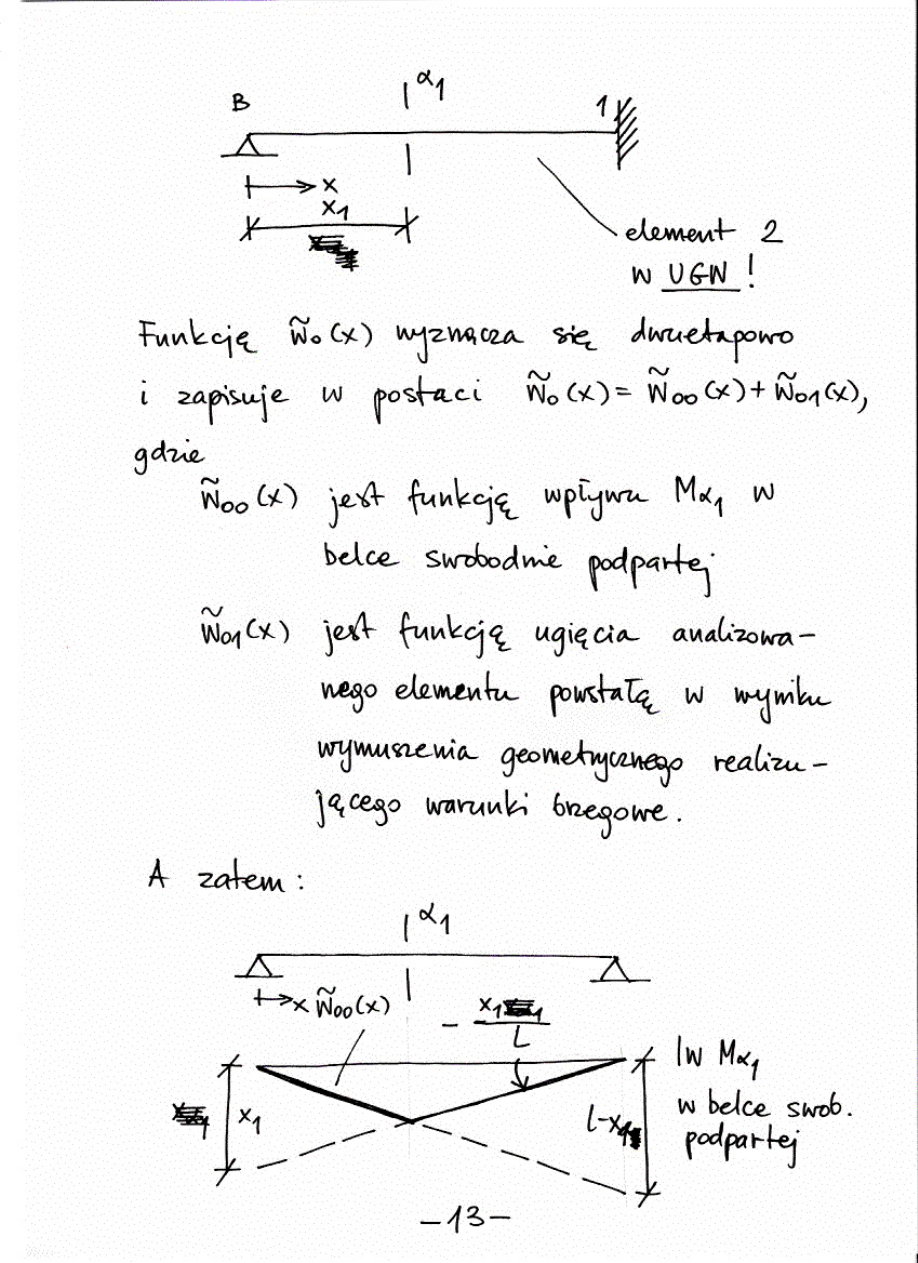 B
α₁
1
x
x₁
element 2
w UGW !
Funkcję w̃₀(x) wyznacza się dwuetapowo
i zapisuje w postaci w̃₀(x) = w̃₀₀(x) + w̃₀₁(x),
gdzie
w̃₀₀(x) jest funkcją wpływu Mα₁ w
belce swobodnie podpartej
w̃₀₁(x) jest funkcją ugięcia analizowa-
nego elementu powstałą w wyniku
wymuszenia geometrycznego realizu-
jącego warunki brzegowe.
A zatem:
α₁
x w̃₀₀(x)
- x₁
L
lw Mα₁
x₁
w belce swob.
L-x₁
podpartej
-13-